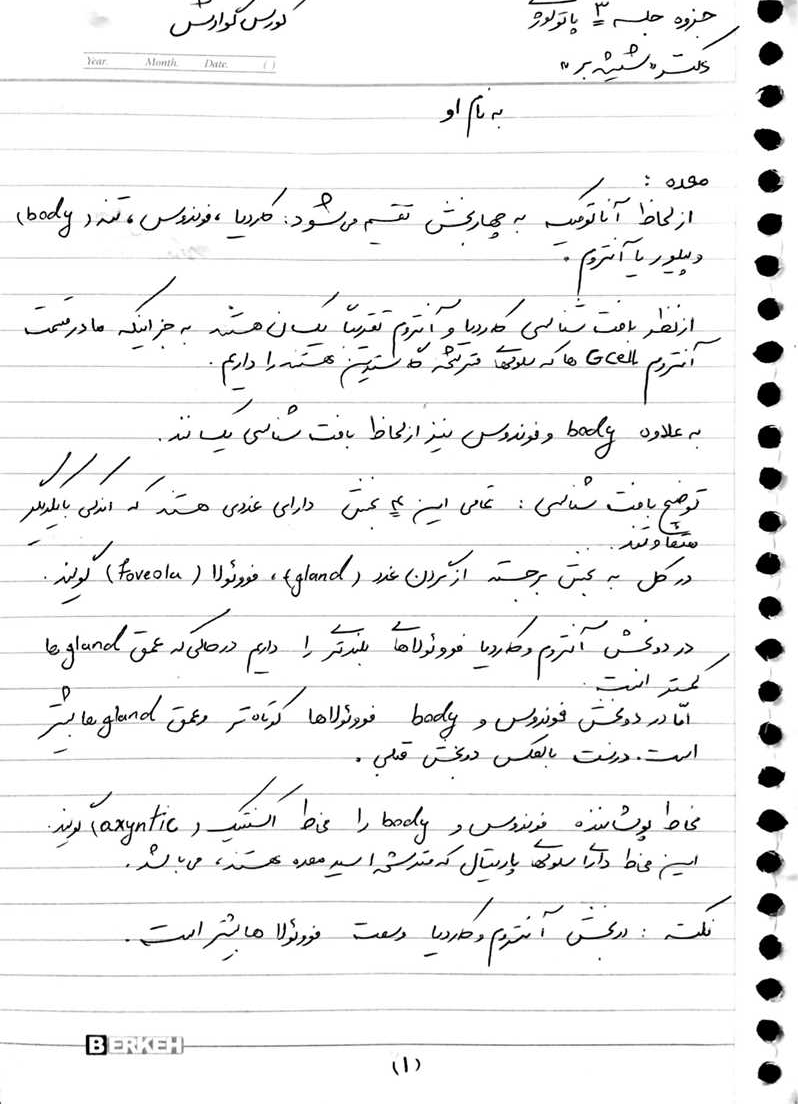 جزوه جلسه ۳ پاتولوژی
کورس گوارش
دکتر «شیشه بر»
Year. Month. Date. ( )
به نام او
معده :
از لحاظ آناتومیک به چهار بخش تقسیم می‌شود: کاردیا ، فوندوس ، تنه (body)
و پیلور یا آنتروم .
از نظر بافت شناسی کاردیا و آنتروم تقریباً یکسان هستند به جز اینکه ما در قسمت
آنتروم G cell ها که سلولهای مترشحه گاسترین هستند را داریم .
به علاوه body و فوندوس نیز از لحاظ بافت شناسی یکسانند .
توضیح بافت شناسی : تمامی این ۴ بخش دارای غددی هستند که اندکی با یکدیگر
متفاوتند .
در کل به بخش برجسته از گردن غدد (gland) ، فووئولا (foveola) گویند .
در دو بخش آنتروم و کاردیا فووئولاهای بلندتری را داریم در حالی که عمق gland ها
کمتر است .
امّا در دو بخش فوندوس و body فووئولاها کوتاه تر و عمق gland ها بیشتر
است . درست بالعکس دو بخش قبلی .
مخاط پوشاننده فوندوس و body را مخاط اکسنتیک (axyntic) گویند .
این مخاط دارای سلولهای پاریتال که مترشحه اسید معده هستند ، می باشد .
نکته : در بخش آنتروم و کاردیا وسعت فووئولا ها بیشتر است .
BERKEH
(۱)